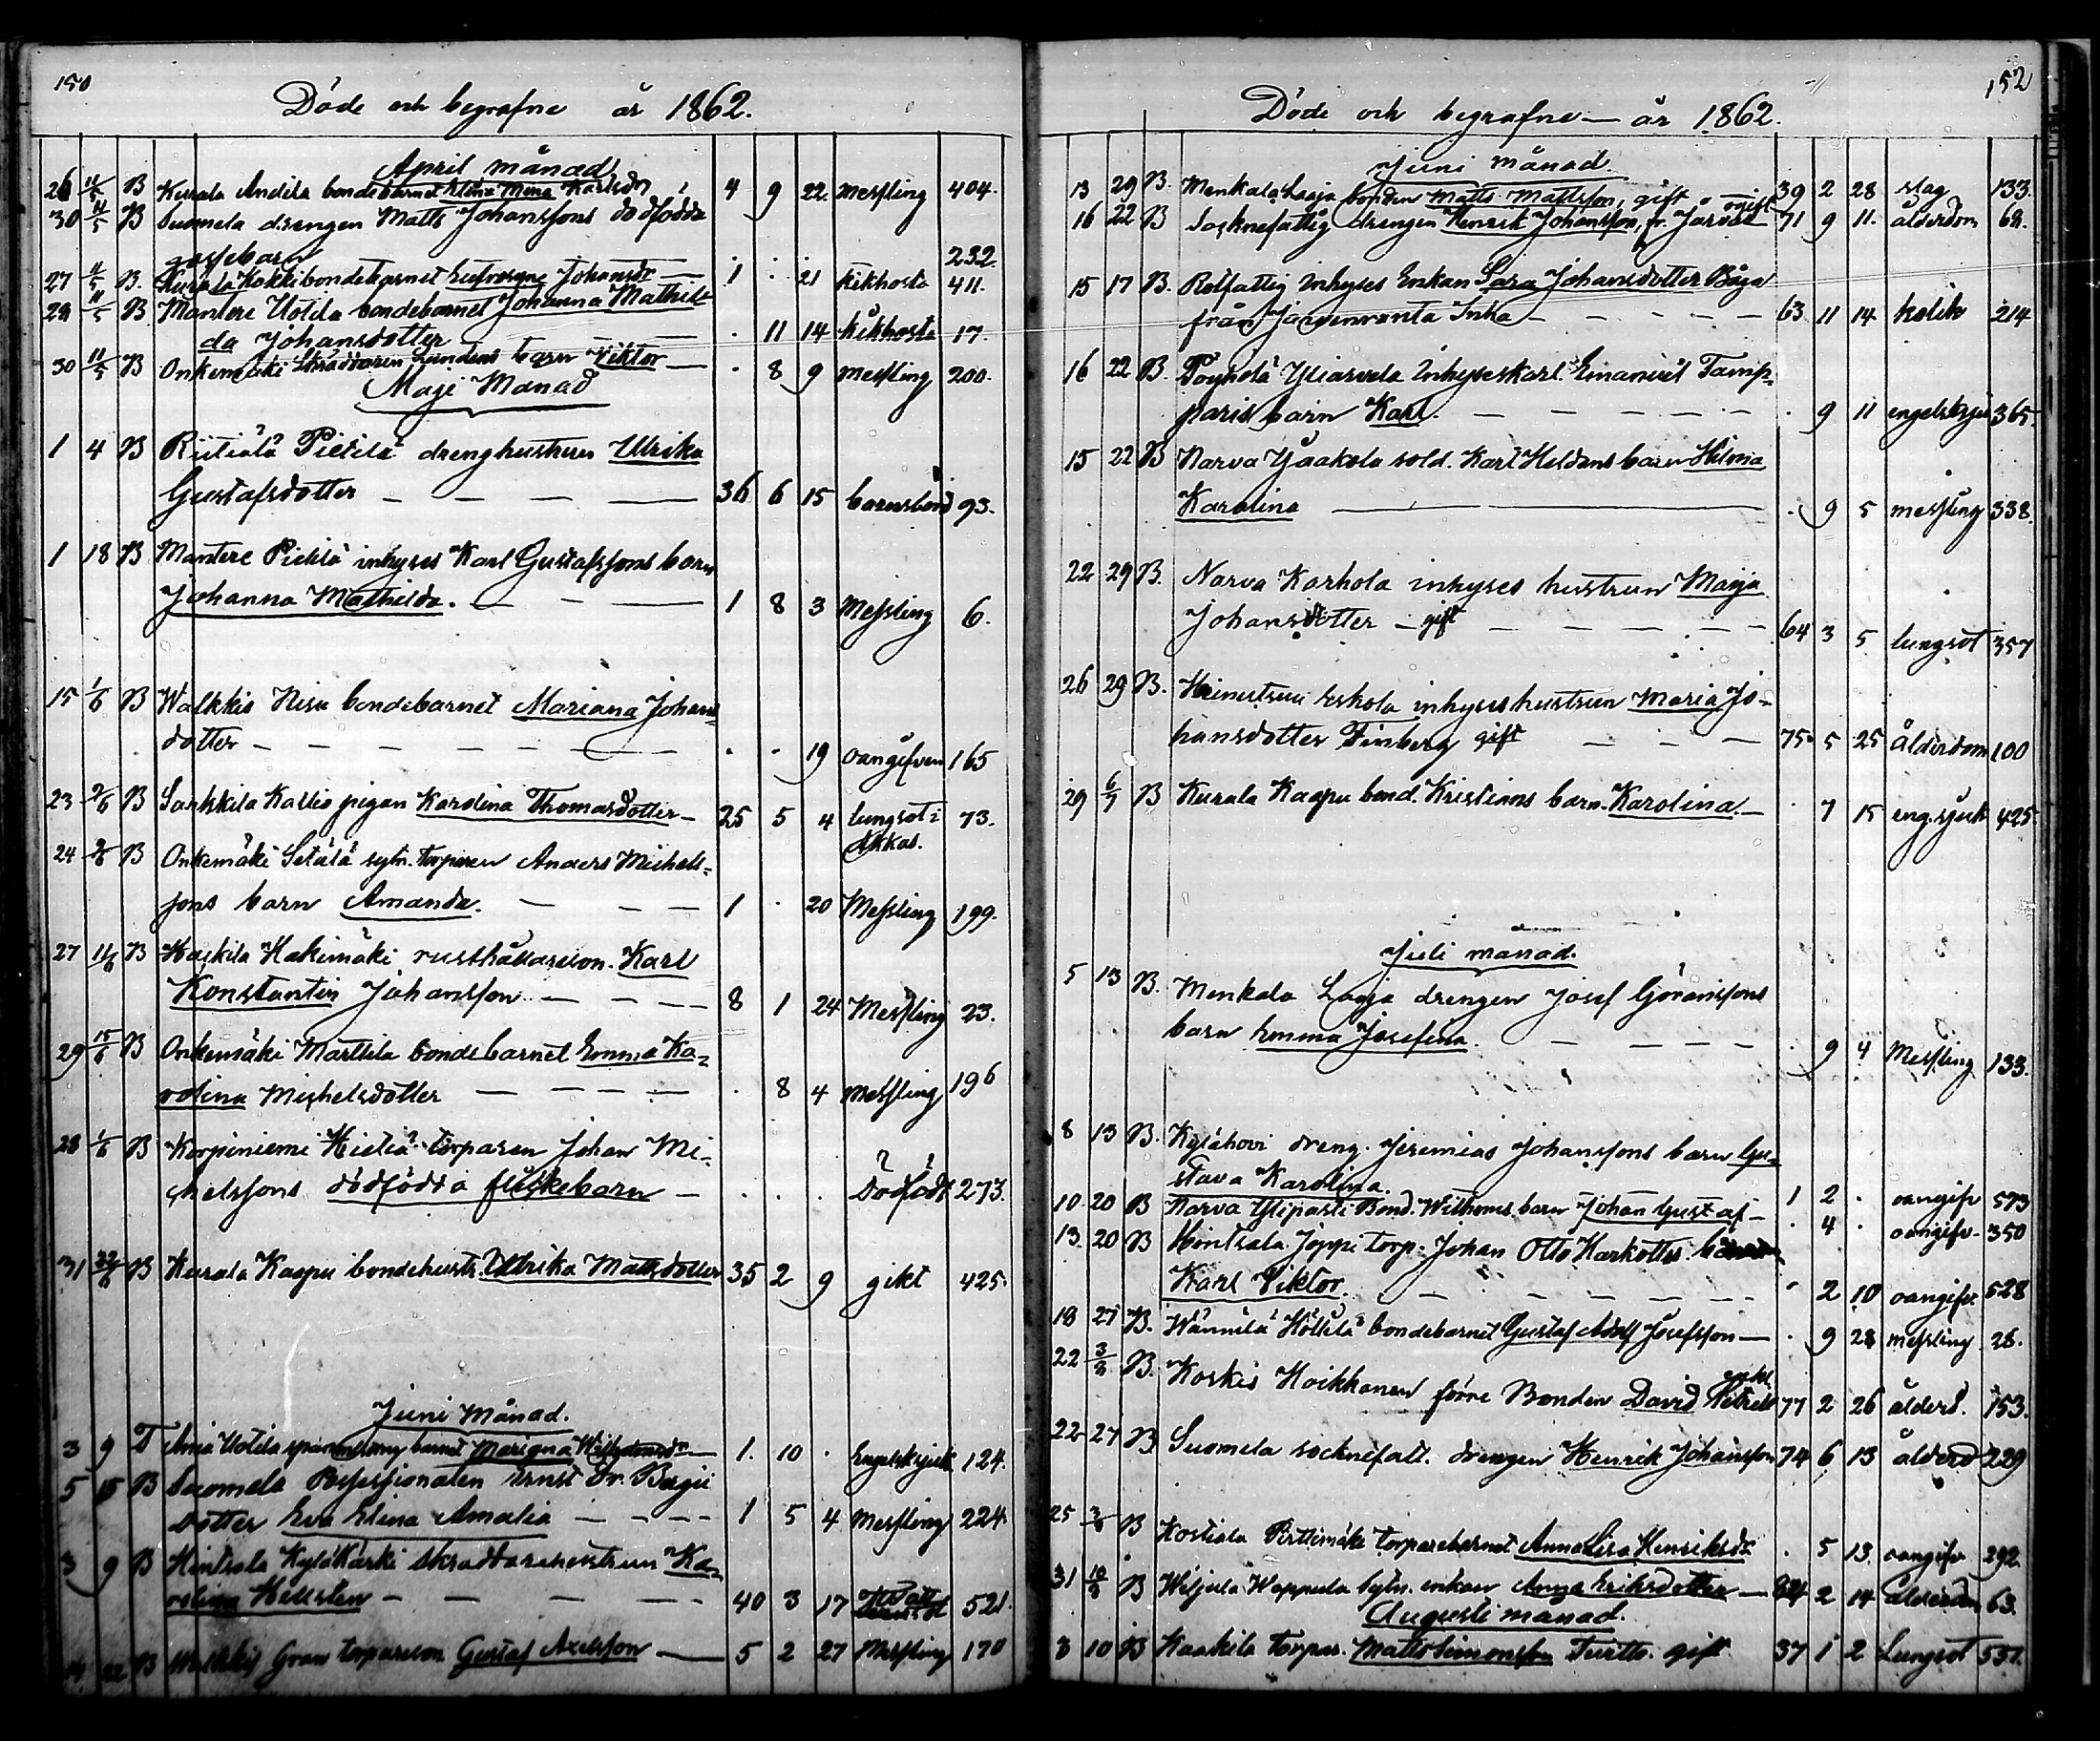 150
Döde och begrafne år 1862.
April månad
26 11/5 B Kurala Andila bondebarnet Stina Mina Karlsdr 4 9 22 Messling 404.
30 11/5 B Suomela drengen Matts Johanssons dödfödda
gossebarn 232.
27 11/5 B. Kurala Kokki bondebarnet Eufrosyne Johansdr — 1 . 21 kikhosta 411.
29 11/5 B Mantere Uotila bondebarnet Johanna Mathil-
da Johansdotter — . 11 14 kikhosta 17.
30 11/5 B Onkemäki Skräddaren Lundens barn Viktor — . 8 9 messling 200.
Maji Månad
1 4 B Riitiälä Pietilä drenghustrun Ulrika
Gustafsdotter — — — — 36 6 15 barnsbörd 93.
1 18 B Mantere Pietilä inhyses Karl Gustafssons barn
Johanna Mathilda. — — — 1 8 3 Messling 6.
15 1/6 B Walkkis Nisu bondebarnet Mariana Johans-
dotter — — — — — — . . 19 oangifven 165
23 9/6 B Sarkkila Kallio pigan Karolina Thomasdotter — 25 5 4 lungsot 73.
24 9/6 B Onkemäki Setälä sytn. torparen Anders Michels-
sons barn Amanda. — — — 1 . 20 Messling 199.
27 11/6 B Haikila Hakimäki rusthållareson. Karl
Konstantin Johansson — — — 8 1 24 Messling 23.
29 15/6 B Onkemäki Marttila bondebarnet Emma Ka-
rolina Michelsdotter — — — — . 8 4 Messling 196
28 1/6 B Korpiniemi Hietia torparen Johan Mi-
chelssons dödfödda flickebarn — . . . Dödfödt 273.
31 22/6 B Kurala Kaapu bondehustr. Ulrika Mattsdotter 35 2 9 gikt 425.
Juni Månad.
3 9 T Ania Uotila barnet Mariana — 1. 10 . Engelsksjuk 124.
5 15 B Suomela Professionalen Ernst Fr. Bagii
dotter Eva Elina Amalia — — — 1 5 4 Messling 224.
3 9 B Hintsala Kylä Karki Skräddarehustrun Ka-
rolina Hellsten — — — — — 40 3 17 521.
14 22 B Walkkis Gran torpareson. Gustaf Axelsson — 5 2 27 Messling 170
152
Döde och begrafne — år 1862.
Juni månad.
13 29 B. Menkala Laaja bonden Matts Mattsson, gift 39 2 28 slag 133.
16 22 B Socknefattig drengen Henrik Johansson, fr. ogift 71 9 11. ålderdom 68.
15 17 B. Rotfattig Inhyses Enkan Sara Johansdotter Båga
från Jarvenranta Inha — — — — — 63 11 14 kolik 214
16 22 B. Poyhölä Yliarvela Inhyseskarl. Emanuel Tamp-
paris barn Karl. — — — — — . 9 11 engelsksju 365.
15 22 B Narva Yäakola sold. Karl Heldans barn Hilma
Karolina — . 9 5 messling 338.
22 29 B. Narva Korhola inhyses hustrun Maija
Johansdotter — gift — — — — 64 3 5 lungsot 357
26 29 B. Eskola inhyses hustrun Maria Jo-
hansdotter Finberg gift — — — 75. 5 25 ålderdom 100
29 6/7 B Kurala Kaapu bond. Kristians barn. Karolina. — . 7 15 eng. sjuk 425
Juli månad.
5 13 B. Menkala Laaja drengen Josef Göranssons
barn Emma Josefina. — — — — . 9 4 Messling 133.
8 13 B. Kylähovi dreng. Jeremias Johanssons barn Gu-
stava Karolina. 1 2 . oangifv 573
10. 20 B Narva Ylipasti Bond. Wilhelms barn Johan Gustaf — . 4 . oangifv. 350
13. 20 B Hintsala Joppi torp. Johan Otto Karkottis barn
Karl Viktor. — — — — — . 2 10 oangifv. 528
18 27 B. Wännilä Höllilä bondebarnet Gustaf Adolf Josefsson — . 9 28 messling 28.
22 3/8 B. Koskis Hoikkanen förre Bonden David 77 2 26 ålderd. 153.
22 27 B Suomela socknefatt. drengen Henrik Johansson 74 6 13 ålderd 229
25 3/8 B Kostiala Pirttimäki torparebarnet Anna Lisa Henriksdr . 5 13. oangifv 292.
31 10/8 B Wiljula Wappula Sytn. enkan Anna Eriksdotter — 84 2 14 ålderdom 63.
Augusti månad.
3 10 B Kaakila torpar. Matts Simonsson Turtto. gift 37 1 2 Lungsot 551.